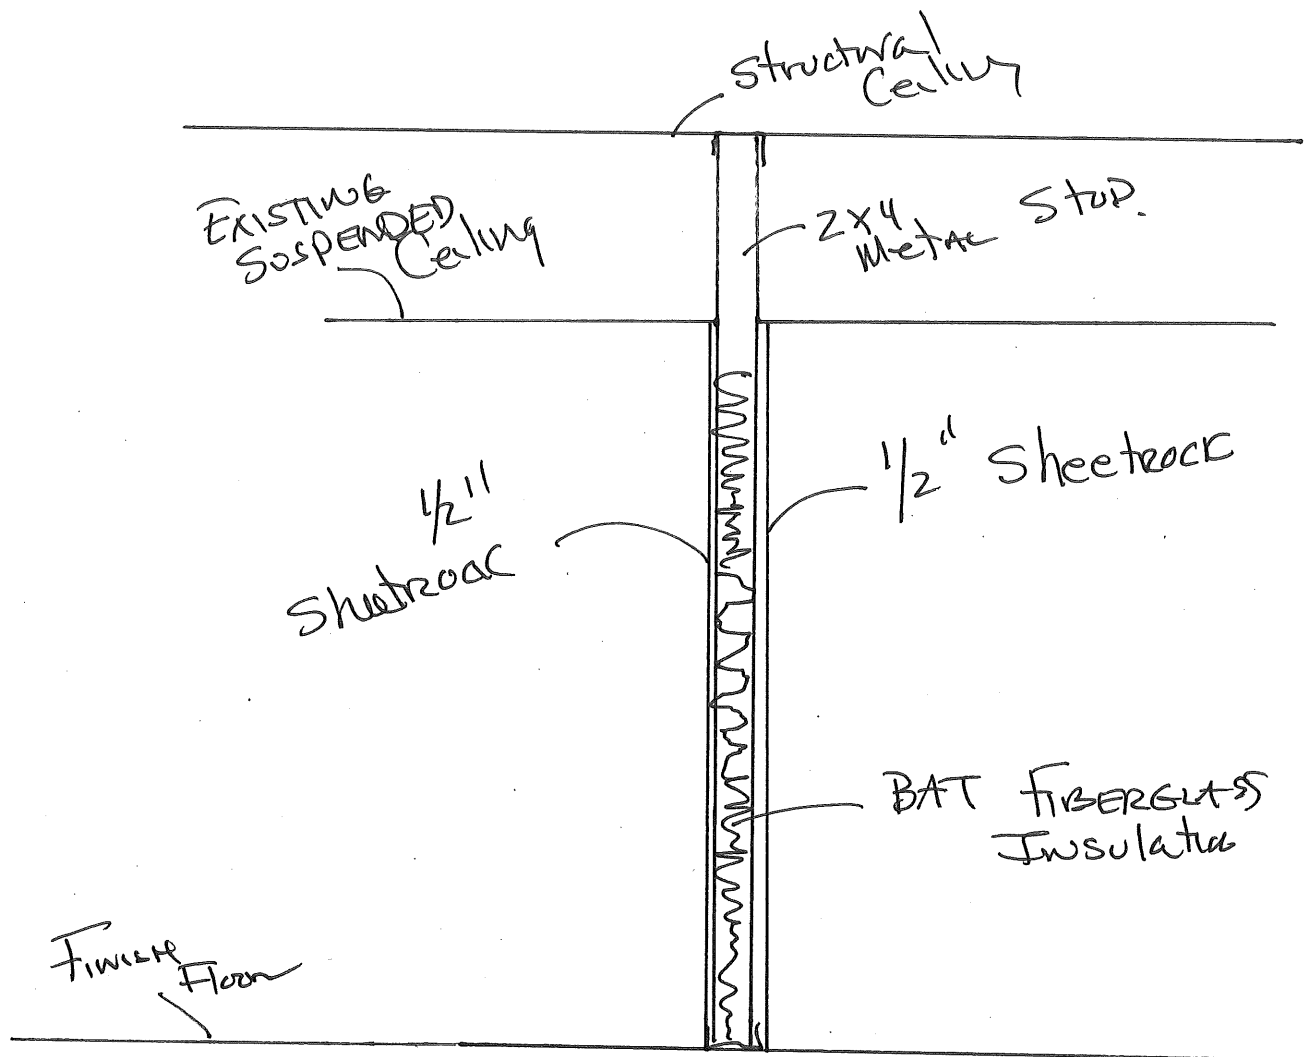 Structural
Ceiling
EXISTING
SUSPENDED
Ceiling
2x4 Stud.
Metal
1/2" Sheetrock
1/2"
Sheetrock
BAT FIBERGLASS
Insulation
Finish
Floor